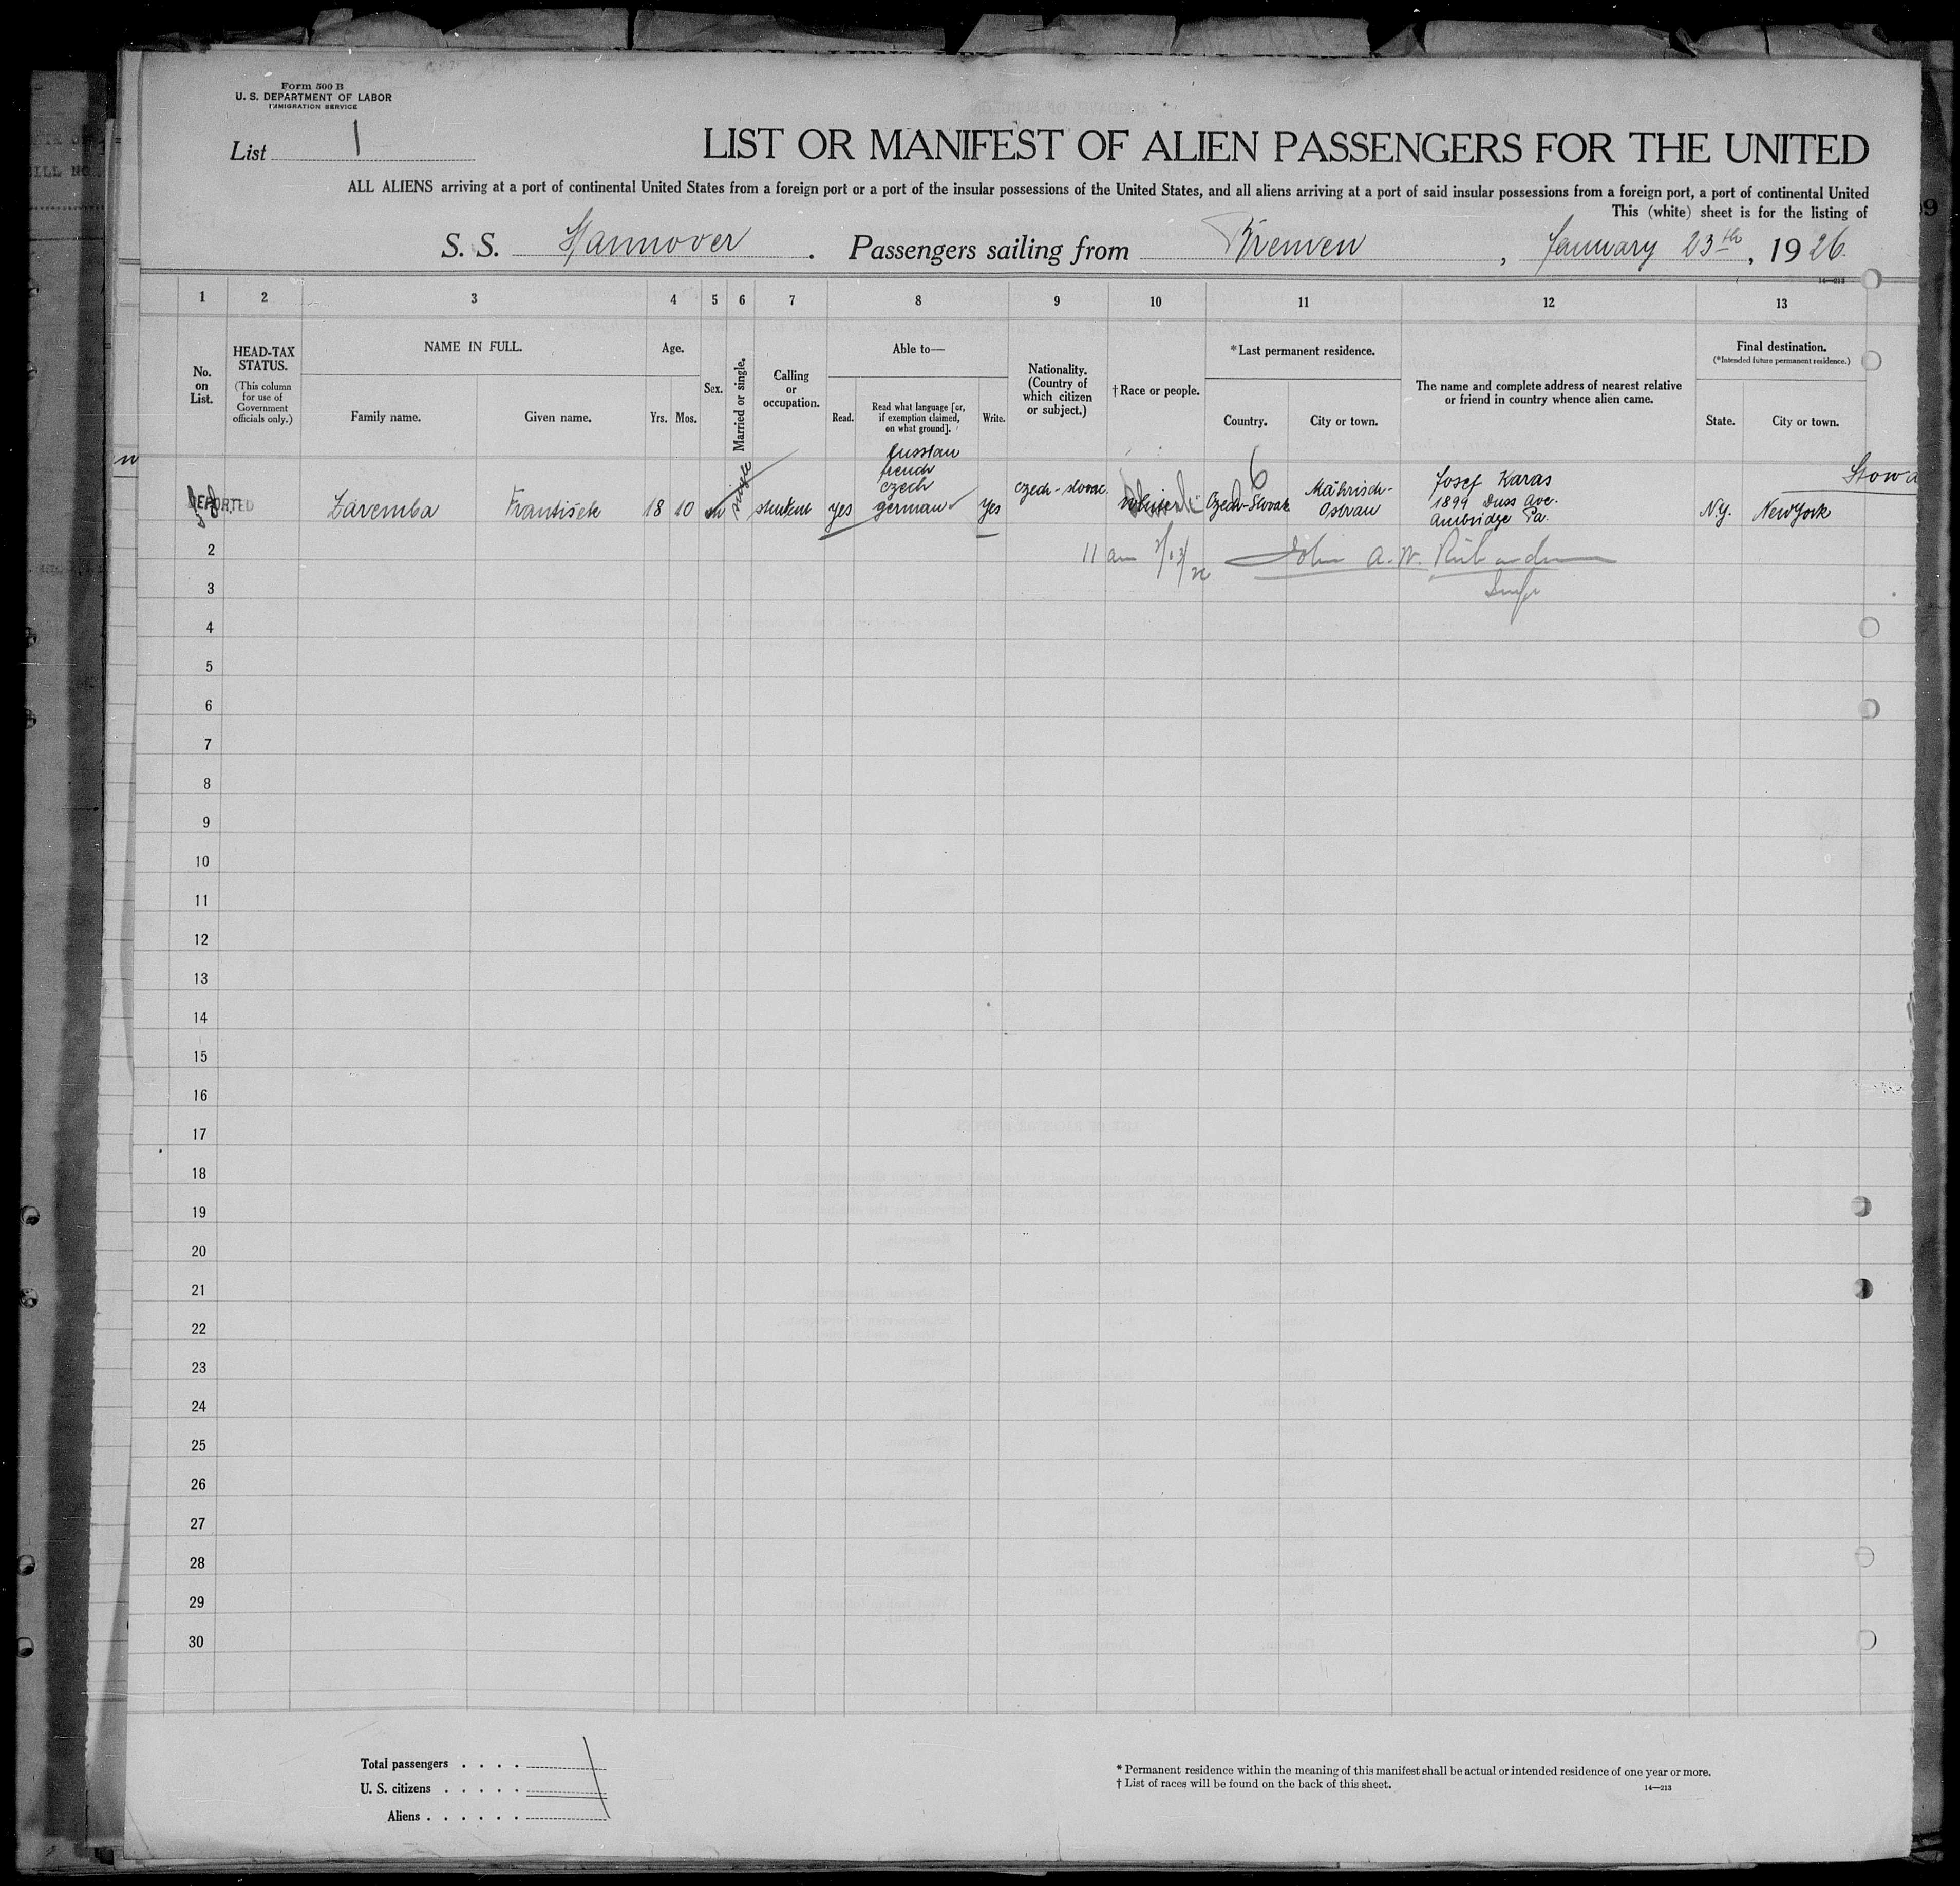 Form 500 B
U. S. DEPARTMENT OF LABOR
IMMIGRATION SERVICE
List 1
LIST OR MANIFEST OF ALIEN PASSENGERS FOR THE UNITED
ALL ALIENS arriving at a port of continental United States from a foreign port or a port of the insular possessions of the United States, and all aliens arriving at a port of said insular possessions from a foreign port, a port of continental United
This (white) sheet is for the listing of
S. S. Hannover. Passengers sailing from Bremen, January 23th, 1926.
14—213
1 2 3 4 5 6 7 8 9 10 11 12 13
No. on List.
HEAD-TAX STATUS.
(This column for use of Government officials only.)
NAME IN FULL.
Family name.
Given name.
Age.
Yrs. Mos.
Sex.
Married or single.
Calling or occupation.
Able to—
Read.
Read what language [or, if exemption claimed, on what ground].
Write.
Nationality. (Country of which citizen or subject.)
† Race or people.
*Last permanent residence.
Country.
City or town.
The name and complete address of nearest relative or friend in country whence alien came.
Final destination.
(*Intended future permanent residence.)
State.
City or town.
DEPORTED
Zaremba František 18 10 m single student yes
russian
french
czech
german
yes
czech-slovac.
6
Czech-Slovak
Mährisch-
Ostrau
Josef Karas
1899 Duss Ave.
Ambridge Pa.
N.Y. New York
Stowa
2
11 am
John A. W.
3
4
5
6
7
8
9
10
11
12
13
14
15
16
17
18
19
20
21
22
23
24
25
26
27
28
29
30
Total passengers . . . .
U. S. citizens . . . . .
Aliens . . . . . .
* Permanent residence within the meaning of this manifest shall be actual or intended residence of one year or more.
† List of races will be found on the back of this sheet.
14—213